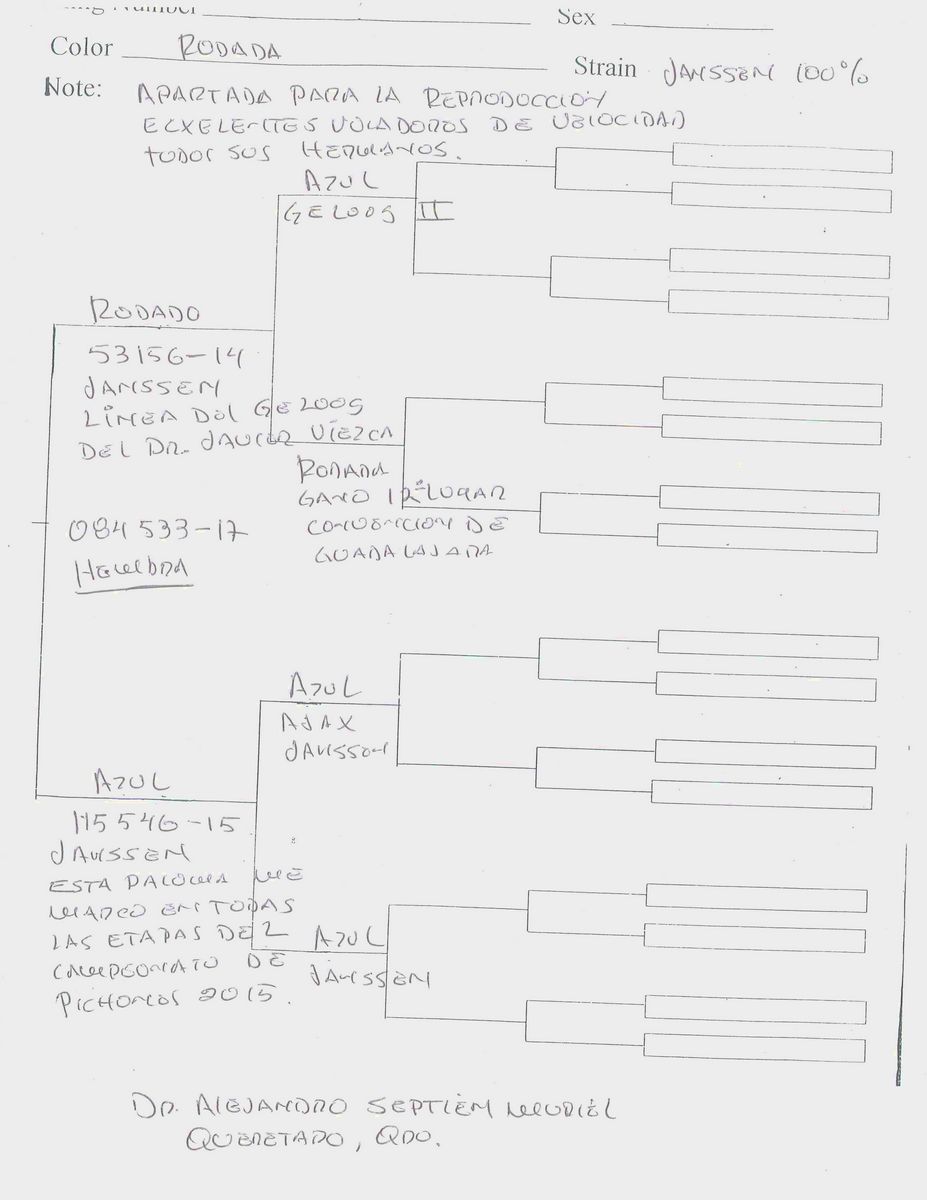 Ring Number
Sex
Color RODADA
Strain JANSSEN 100%
Note: APARTADA PARA LA REPRODOCCION
ECXELENTES VOLADORES DE VELOCIDAD
TODOS SUS HERMANOS.
AZUL
GELOOS II
RODADO
53156-14
JANSSEN
LÍNEA DEL GELOOS
DEL DR. JAVIER VIEZCA
RODADA
GANO 12º LUGAR
CONVENCION DE
GUADALAJARA
084533-17
HEMBRA
AZUL
AJAX
JANSSEN
AZUL
115546-15
JANSSEN
ESTA PALOMA ME
MARCO EN TODAS
LAS ETAPAS DEL
CAMPEONATO DE
PICHONES 2015.
AZUL
JANSSEN
DR. ALEJANDRO SEPTIÉM MURIEL
QUERETARO, QRO.